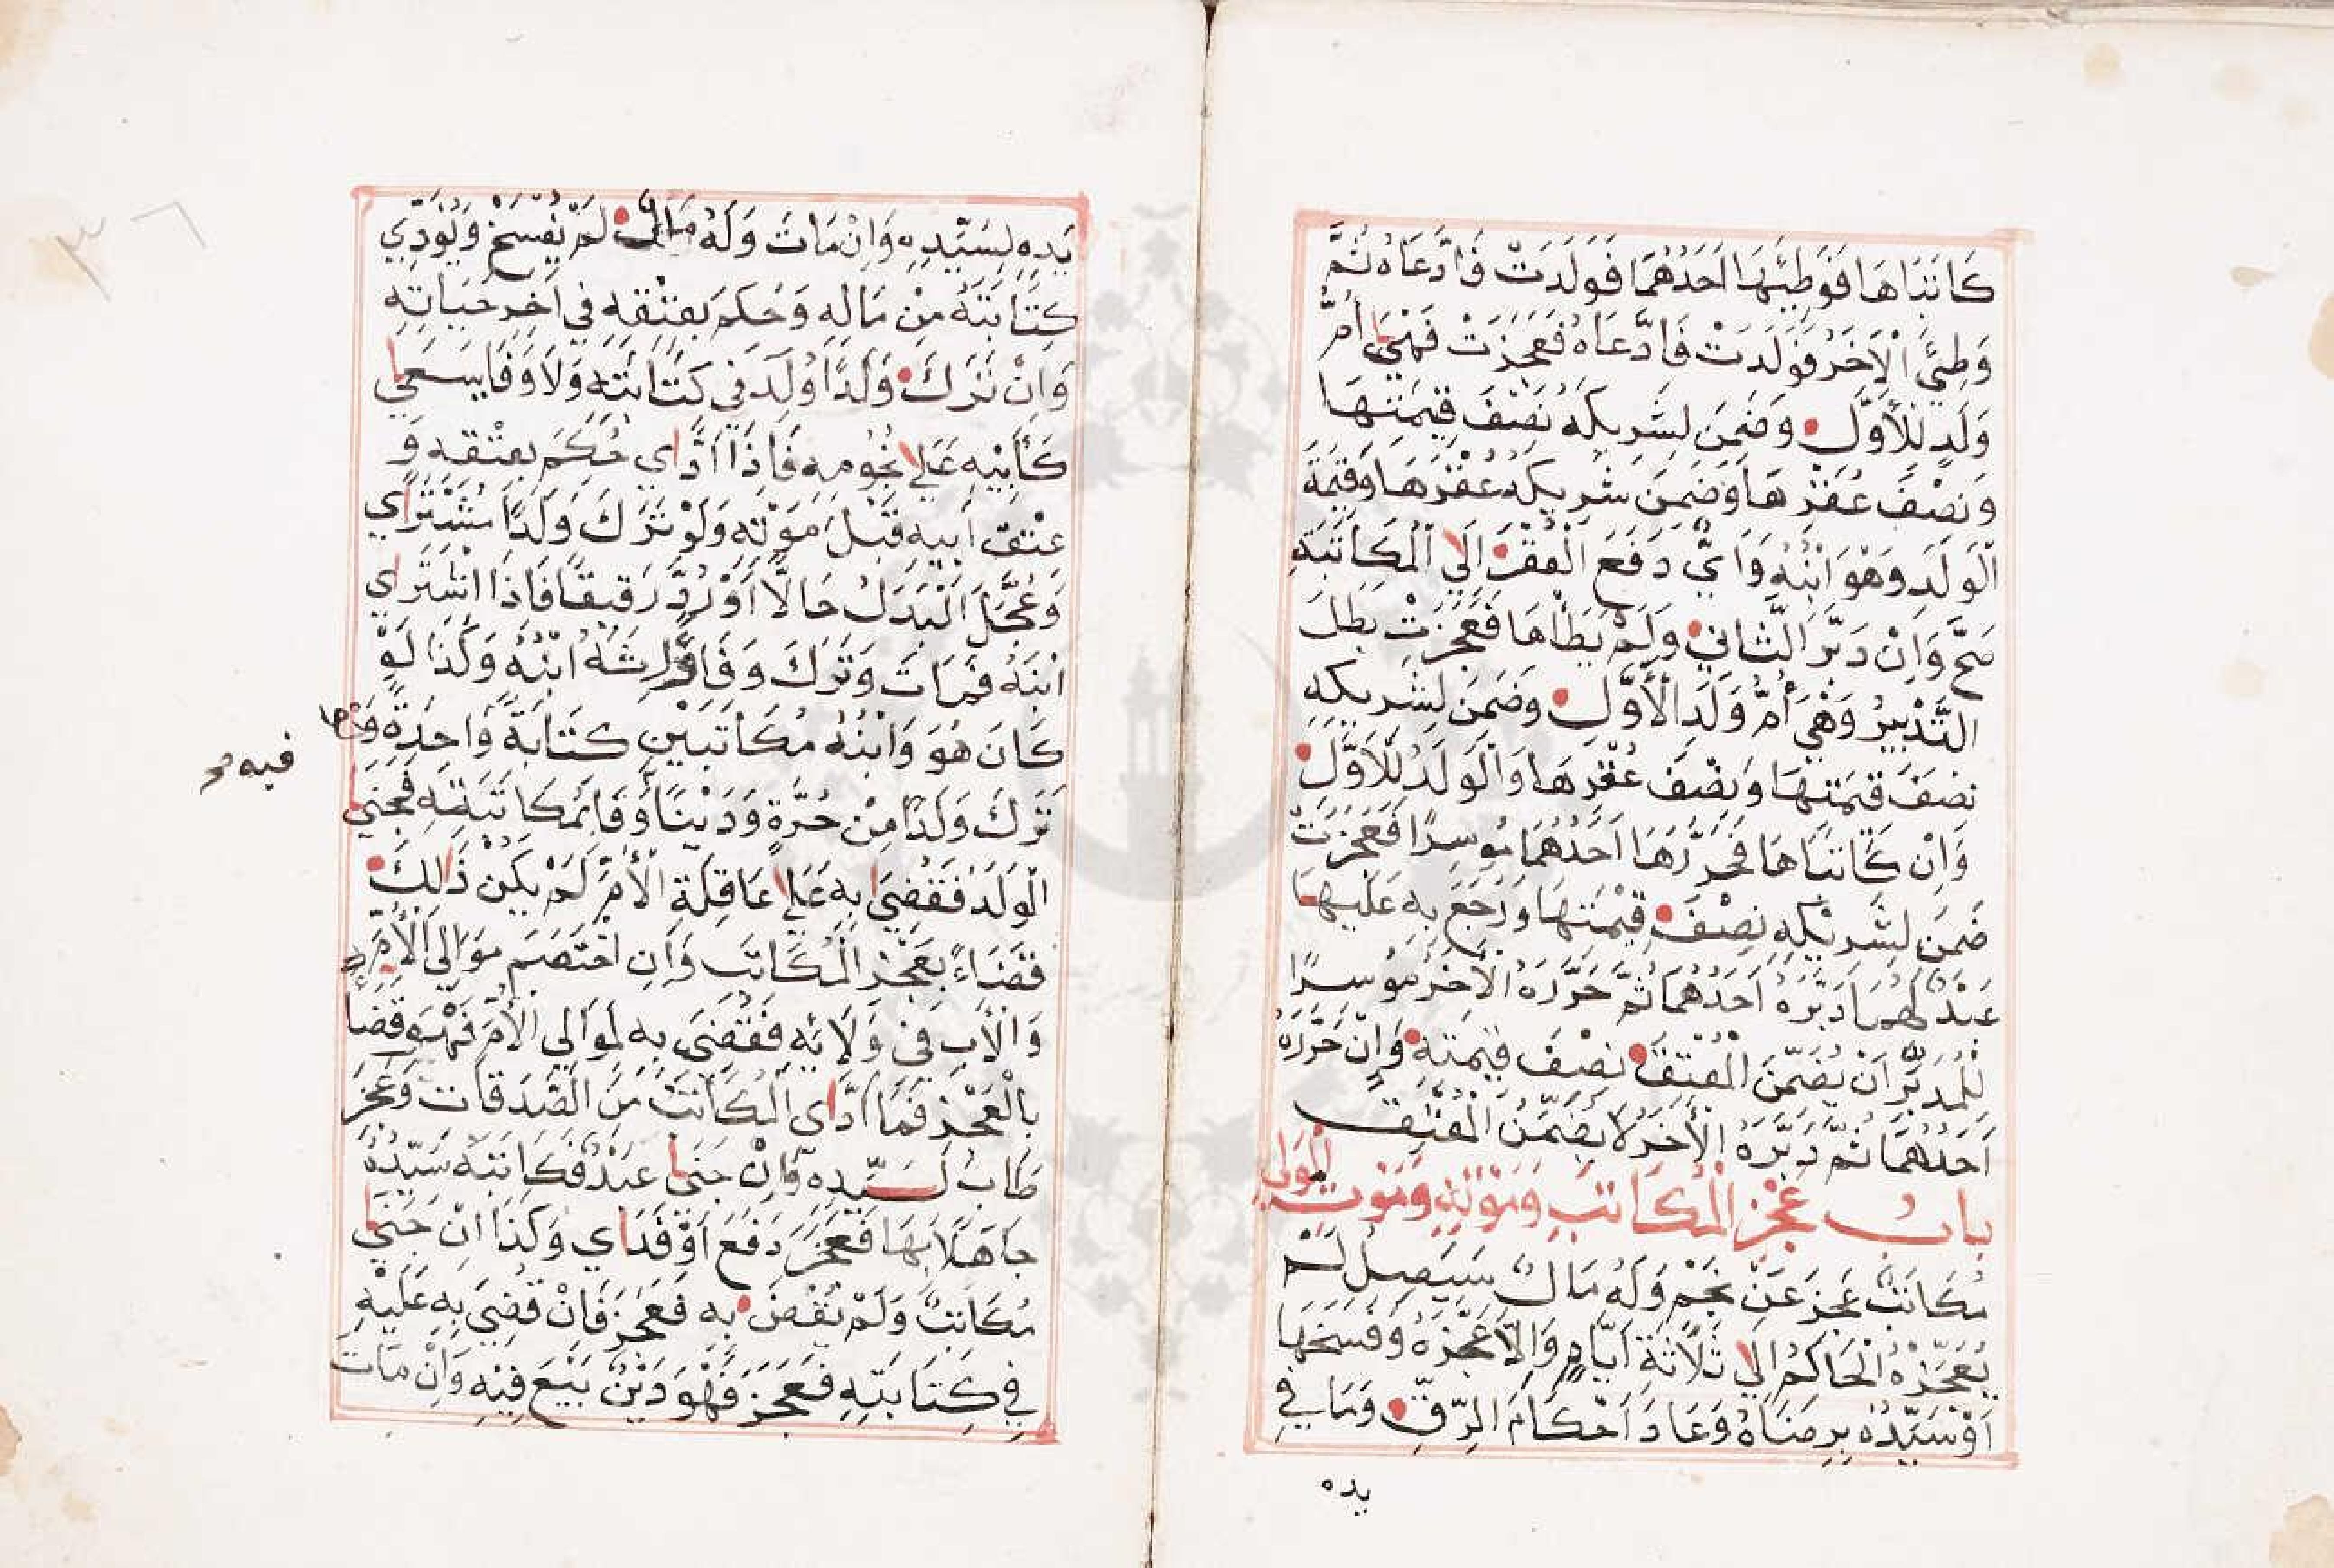 كَاتَبَاهَا فَوَطِئَهَا اَحَدُهُمَا فَوَلَدَتْ فَادَّعَاهُ ثُمَّ
وَطِئَ الْاَخَرُ فَوَلَدَتْ فَادَّعَاهُ فَعَجِزَتْ فَهْيَ اُمُّ
وَلَدٍ لِلْأَوَّلِ وَضَمِنَ لِشَرِيكِهِ نِصْفَ قِيمَتِهَا
وَنِصْفَ عُقْرِهَا وَضَمِنَ شَرِيكُهُ عُقْرَهَا وَقِيمَةَ
الْوَلَدِ وَهْوَ ابْنُهُ وَاَيٌّ دَفَعَ الْعُقْرَ اِلَي الْمُكَاتَبَةِ
صَحَّ وَاِنْ دَبَّرَ الثَّانِي وَلَمْ يَطَأْهَا فَعَجَزَتْ بَطَلَ
التَّدْبِيرُ وَهْيَ اُمُّ وَلَدِ الْأَوَّلِ وَضَمِنَ لِشَرِيكِهِ
نِصْفَ قِيمَتِهَا وَنِصْفَ عُقْرِهَا وَالْوَلَدُ لِلْأَوَّلِ
وَاِنْ كَاتَبَاهَا فَحَرَّرَهَا اَحَدُهُمَا مُوسِرًا فَعَجَزَتْ
ضَمِنَ لِشَرِيْكِهِ نِصْفَ قِيْمَتِهَا وَرَجَعَ بِهِ عَلَيْهَا
عَبْدٌ لَهُمَا دَبَّرَهُ اَحَدُهُمَا ثُمَّ حَرَّرَهُ الْاَخَرُ مُوسِرًا
لِلْمُدَبِّرِ اَنْ يُضَمِّنَ الْمُعْتِقَ نِصْفَ قِيمَتِهِ وَاِنْ حَرَّرَهُ
اَحَدُهُمَا ثُمَّ دَبَّرَهُ الْأَخَرُ لَا يُضَمِّنُ الْمُعْتِقَ
بابُ عَجْزِ الْمُكَاتَبِ وَمَوْتِهِ وَمَوْتِ الْمَوْلَي
مُكَاتَبٌ عَجَزَ عَنْ نَجْمٍ وَلَهُ مَالٌ سَيَصِلُ لَمْ
يُعَجِّزْهُ الْحَاكِمُ اِلَي ثَلَاثَةِ اَيَّامٍ وَاِلَّا عَجَّزَهُ وَفَسَخَهَا
اَوْ سَيِّدُهُ بِرِضَاهُ وَعَادَ اَحْكَامُ الرِّقِّ وَمَا فِي
يده
يَدِهِ لِسَيِّدِهِ وَاِنْ مَاتَ وَلَهُ مَالٌ لَمْ يُفْسَخْ وَيُؤَدِّي
كِتَابَتَهُ مِنْ مَالِهِ وَحُكِمَ بِعِتْقِهِ فِي اَخِرِ حَيَاتِهِ
وَاِنْ تَرَكَ وَلَدًا وُلِدَ فِي كِتَابَتِهِ وَلَا وَفَا يَسْعَي
كَأَبِيْهِ عَلَي نُجُومِهِ فَاِذَا اَدَّاي حُكِمَ بِعِتْقِهِ وَ
عِتْقِ اَبِيهِ قَبْلَ مَوْتِهِ وَلَوْ تَرَكَ وَلَدًا مُشْتَرَاي
وَعَجَّلَ الْبَدَلَ حَالًّا اَوْ رُدَّ رَقِيقًا فَاِذَا اشْتَرَاي
ابْنَهُ فَمَاتَ وَتَرَكَ وَفَا وَرِثَهُ ابْنُهُ وَكَذَا لَوْ
كَانَ هُوَ وَابْنُهُ مُكَاتَبَيْنِ كِتَابَةً وَاحِدَةً وَاِنْ
تَرَكَ وَلَدًا مِنْ حُرَّةٍ وَدَيْنًا وَفَا بِمُكَاتَبَتِهِ فَجَنَي
فيه
الْوَلَدُ فَقُضِيَ بِهِ عَلَي عَاقِلَةِ الْأُمِّ لَمْ يَكُنْ ذَالِكَ
قَضَاءً بِعَجْزِ الْمُكَاتَبِ وَاِنِ اخْتَصَمَ مَوَالِي الْأُمِّ
وَالْأَبِ فِي وَلَائِهِ فَقُضِيَ بِهِ لِمَوَالِي الْأُمِّ فَهْوَ قَضَا
بِالْعَجْزِ فَمَا اَدَّاي الْمُكَاتَبُ مِنَ الصَّدَقَاتِ وَعَجَزَ
طَابَ لِسَيِّدِهِ وَاِنْ جَنَي عَبْدٌ فَكَاتَبَهُ سَيِّدُهُ
جَاهِلًا بِهَا فَعَجَزَ دَفَعَ اَوْ فَدَاي وَكَذَا اِنْ جَنَي
مُكَاتَبٌ وَلَمْ يُقْضَ بِهِ فَعَجَزَ فَاِنْ قُضِيَ بِهِ عَلَيْهِ
فِي كِتَابَتِهِ فَعَجَزَ فَهْوَ دَيْنٌ بِيْعَ فِيْهِ وَاِنْ مَاتَ
٣٦